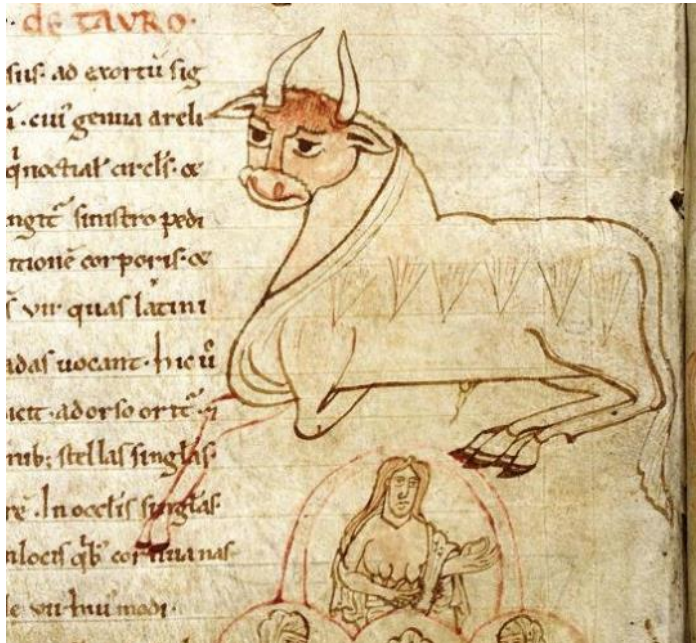 · de tavro ·
sus· ad exortū sig
ū· cui' genua areli
q̄noctial' circl's· &
ngit̄ sinistro pedi
itione corporis· &
s̄ vii· quas latini
adas uocant· hic ū
ort̄
nib; stellas singlas·
rē· In ocelis singlas·
nlocis
le vii· hui' modi·